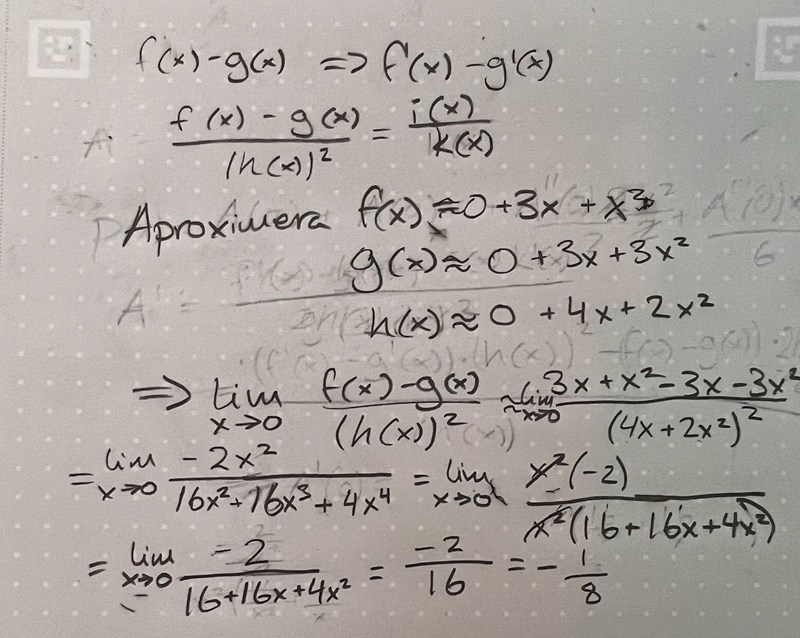 f(x)-g(x) => f'(x) -g'(x)
f(x) - g(x) / (h(x))² = i(x) / k(x)
Aproximera f(x) ≈ 0 + 3x + x²
g(x) ≈ 0 + 3x + 3x²
h(x) ≈ 0 + 4x + 2x²
=> lim x→0 f(x)-g(x) / (h(x))² ≈ lim x→0 3x + x² - 3x - 3x² / (4x + 2x²)²
= lim x→0 -2x² / 16x² + 16x³ + 4x⁴ = lim x→0 x²(-2) / x²(16 + 16x + 4x²)
= lim x→0 -2 / 16+16x+4x² = -2 / 16 = - 1 / 8